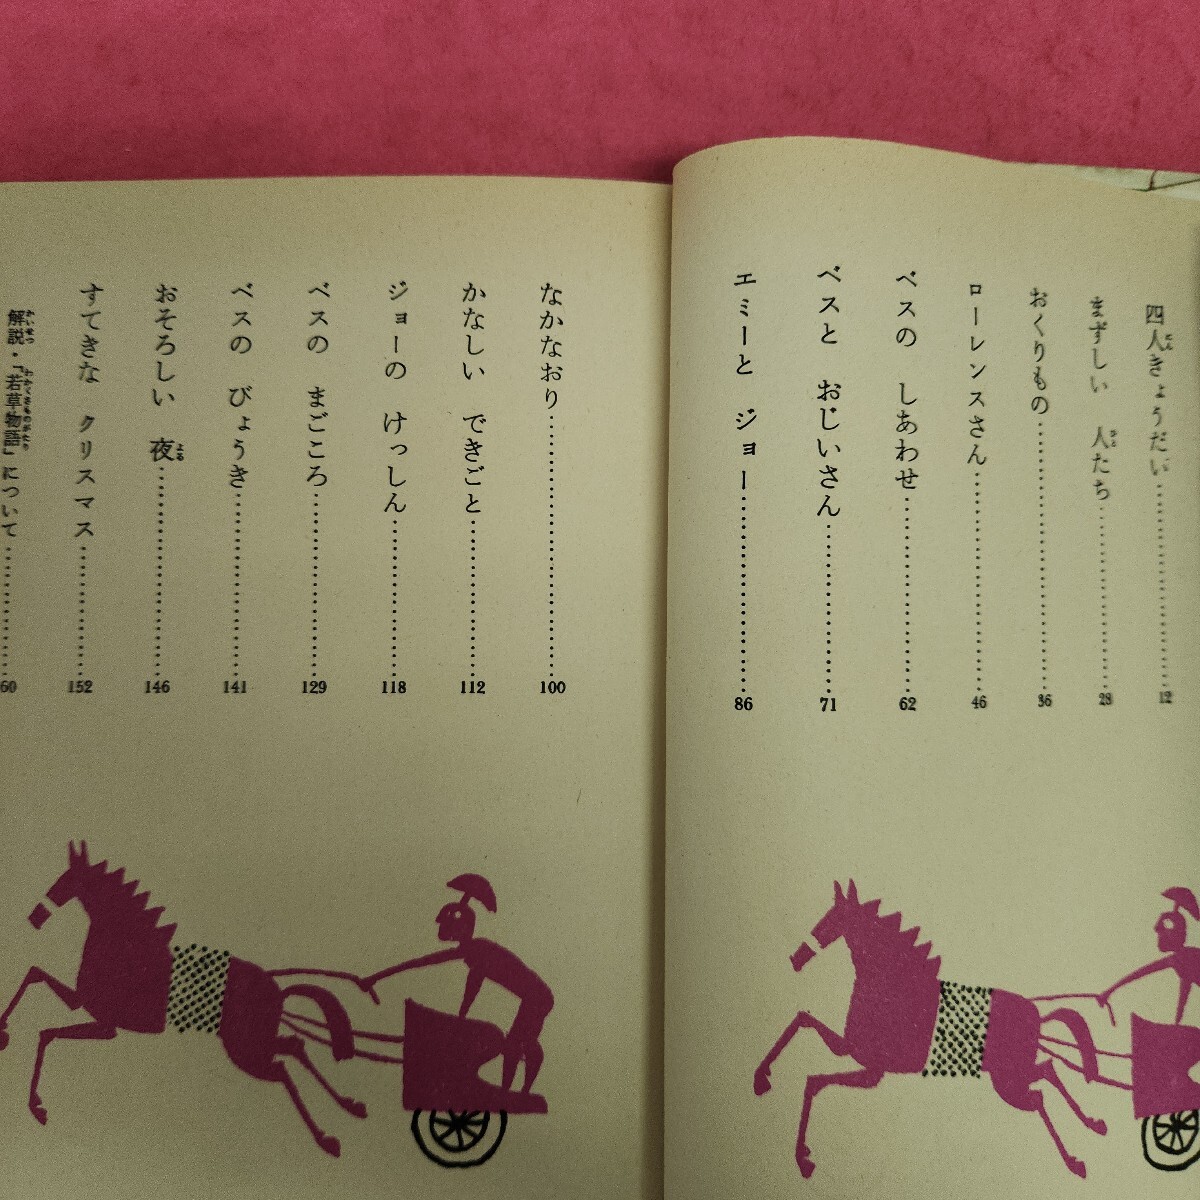 四人きょうだい…………………12
まずしい 人たち…………………28
おくりもの…………………36
ローレンスさん…………………46
ベスの しあわせ…………………62
ベスと おじいさん…………………71
エミーと ジョー…………………86
なかなおり…………………100
かなしい できごと…………………112
ジョーの けっしん…………………118
ベスの まごころ…………………129
ベスの びょうき…………………141
おそろしい 夜…………………146
すてきな クリスマス…………………152
解説・「若草物語」について…………………60